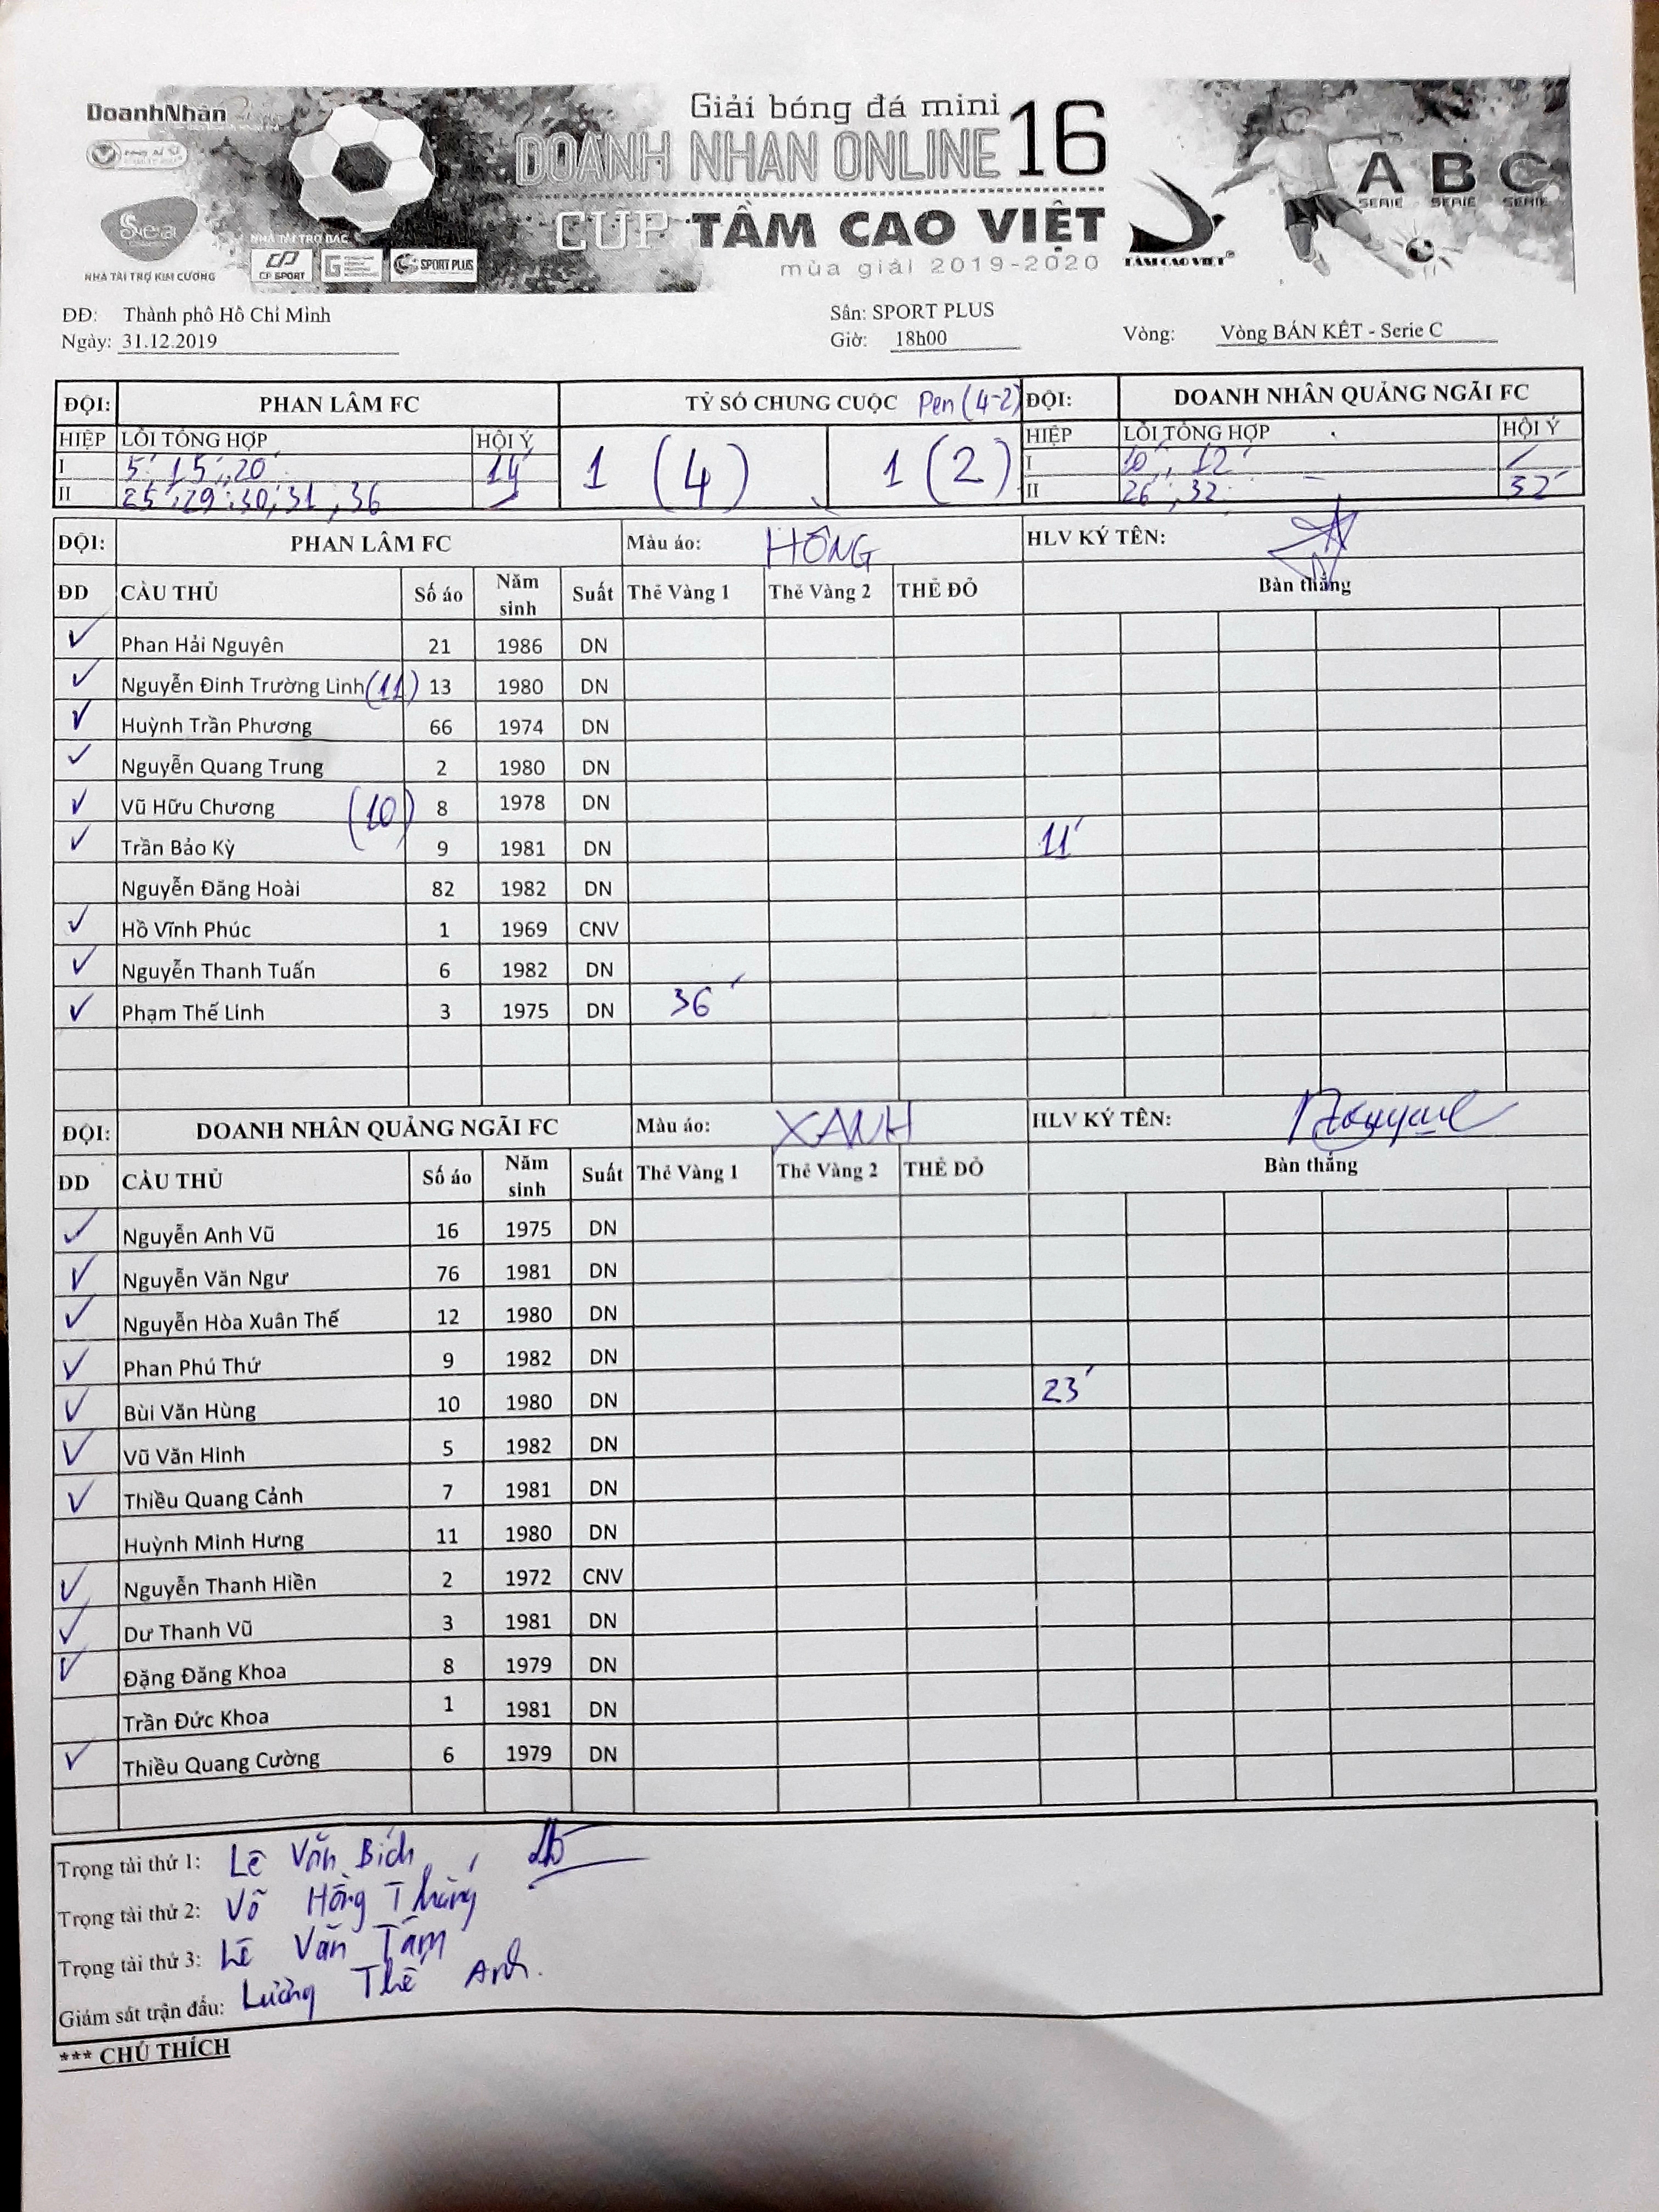 DoanhNhân
Sea
NHÀ TÀI TRỢ KIM CƯƠNG
NHÀ TÀI TRỢ BẠC
CP SPORT
SPORT PLUS
Giải bóng đá mini
DOANH NHAN ONLINE 16
CUP TẦM CAO VIỆT
mùa giải 2019-2020
TẦM CAO VIỆT®
A B C
SERIE SERIE SERIE
ĐĐ: Thành phố Hồ Chí Minh Sân: SPORT PLUS
Ngày: 31.12.2019 Giờ: 18h00 Vòng: Vòng BÁN KẾT - Serie C
ĐỘI: PHAN LÂM FC TỶ SỐ CHUNG CUỘC Pen (4-2) ĐỘI: DOANH NHÂN QUẢNG NGÃI FC
HIỆP LỖI TỔNG HỢP HỘI Ý 1 (4) 1 (2) HIỆP LỖI TỔNG HỢP HỘI Ý
I 5' 15', 20' 14' I 10', 12'
II 25', 29', 30', 31', 36 II 26', 32' 32'
ĐỘI: PHAN LÂM FC Màu áo: HỒNG HLV KÝ TÊN:
ĐD CẦU THỦ Số áo Năm sinh Suất Thẻ Vàng 1 Thẻ Vàng 2 THẺ ĐỎ Bàn thắng
Phan Hải Nguyên 21 1986 DN
Nguyễn Đinh Trường Linh (11) 13 1980 DN
Huỳnh Trần Phương 66 1974 DN
Nguyễn Quang Trung 2 1980 DN
Vũ Hữu Chương (10) 8 1978 DN
Trần Bảo Kỳ 9 1981 DN 11'
Nguyễn Đăng Hoài 82 1982 DN
Hồ Vĩnh Phúc 1 1969 CNV
Nguyễn Thanh Tuấn 6 1982 DN
Phạm Thế Linh 3 1975 DN 36'
ĐỘI: DOANH NHÂN QUẢNG NGÃI FC Màu áo: XANH HLV KÝ TÊN:
ĐD CẦU THỦ Số áo Năm sinh Suất Thẻ Vàng 1 Thẻ Vàng 2 THẺ ĐỎ Bàn thắng
Nguyễn Anh Vũ 16 1975 DN
Nguyễn Văn Ngư 76 1981 DN
Nguyễn Hòa Xuân Thế 12 1980 DN
Phan Phú Thứ 9 1982 DN
Bùi Văn Hùng 10 1980 DN 23'
Vũ Văn Hinh 5 1982 DN
Thiều Quang Cảnh 7 1981 DN
Huỳnh Minh Hưng 11 1980 DN
Nguyễn Thanh Hiền 2 1972 CNV
Dư Thanh Vũ 3 1981 DN
Đặng Đăng Khoa 8 1979 DN
Trần Đức Khoa 1 1981 DN
Thiều Quang Cường 6 1979 DN
Trọng tài thứ 1: Lê Văn Bích
Trọng tài thứ 2: Võ Hồng Thắng
Trọng tài thứ 3: Lê Văn Tám
Giám sát trận đấu: Lường Thế Anh.
*** CHÚ THÍCH